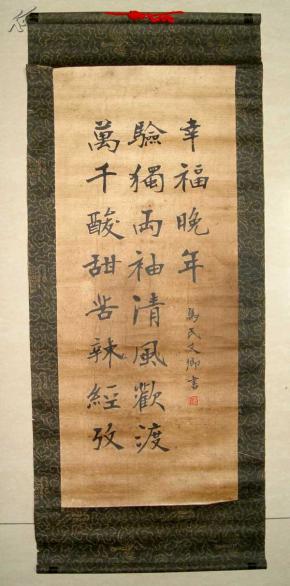 萬千酸甜苦辣經攷
驗獨両袖清風歡渡
幸福晚年
馬文卿書